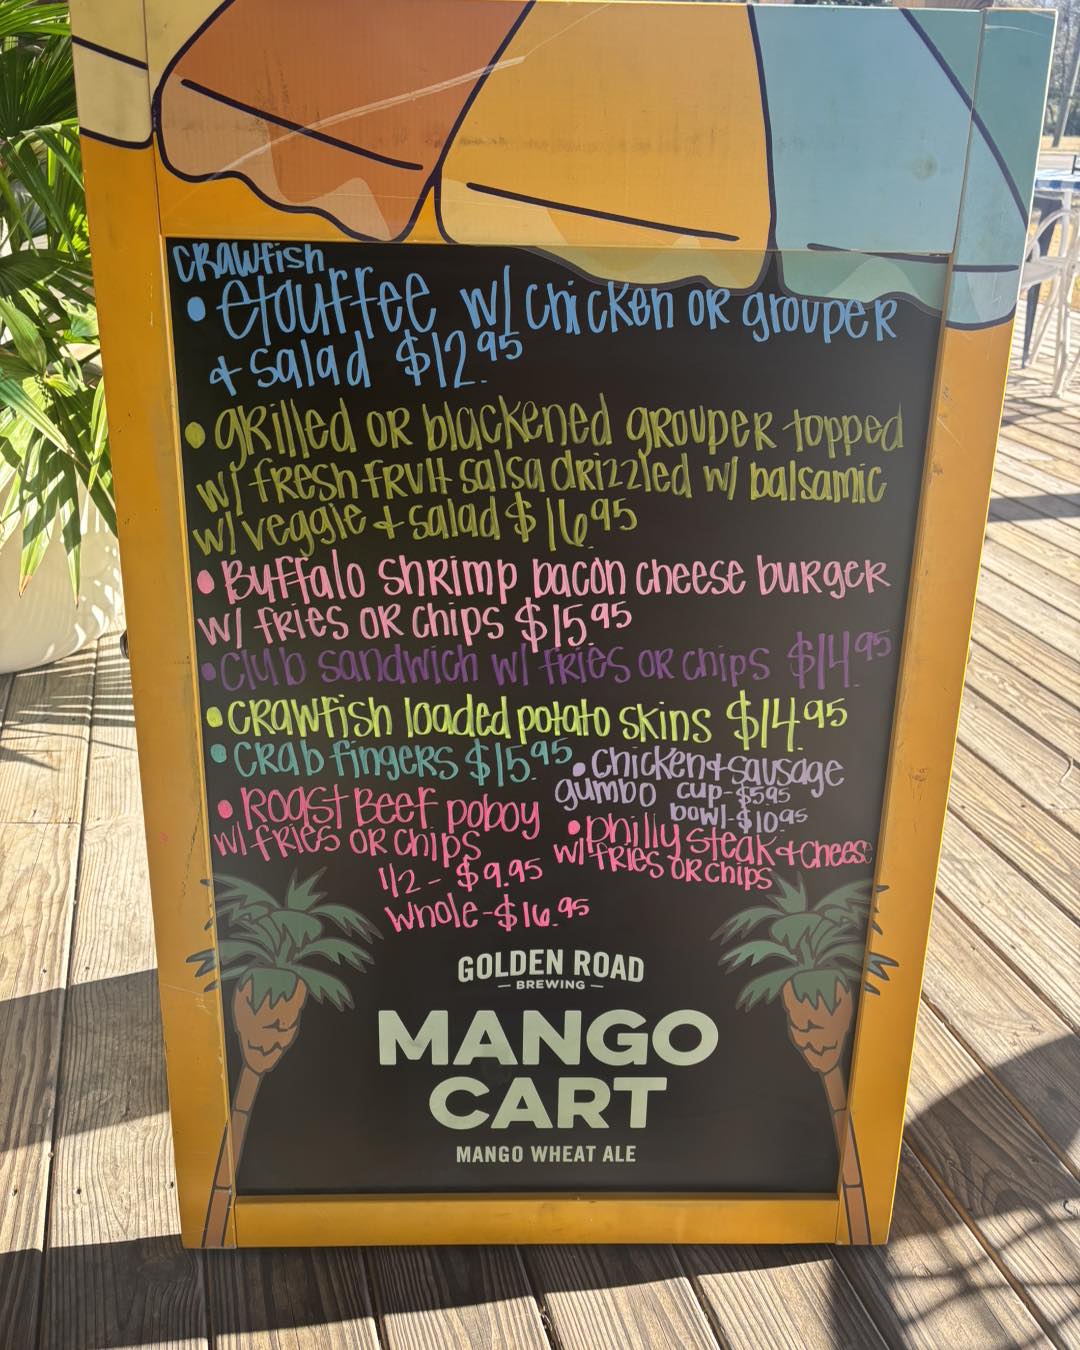 CRAWFish
• etouffee w/ chicken OR grouper
+ salad $12.95
• gRilled OR blackened gROUpeR topped
w/ fResh fRuit salsa dRizzled w/ balsamic
w/ veggie + salad $16.95
• Buffalo shRimp bacon cheese buRgeR
w/ fRies OR chips $15.95
• Club sandwich w/ fRies OR chips $14.95
• CRAWfish loaded potato skins $14.95
• CRab fingeRs $15.95
• chicken+sausage
gumbo cup-$5.95
bowl-$10.95
• ROast Beef poboy
w/ fRies OR chips
1/2 - $9.95
Whole-$16.95
• philly steak+cheese
w/ fRies OR chips
GOLDEN ROAD
— BREWING —
MANGO
CART
MANGO WHEAT ALE